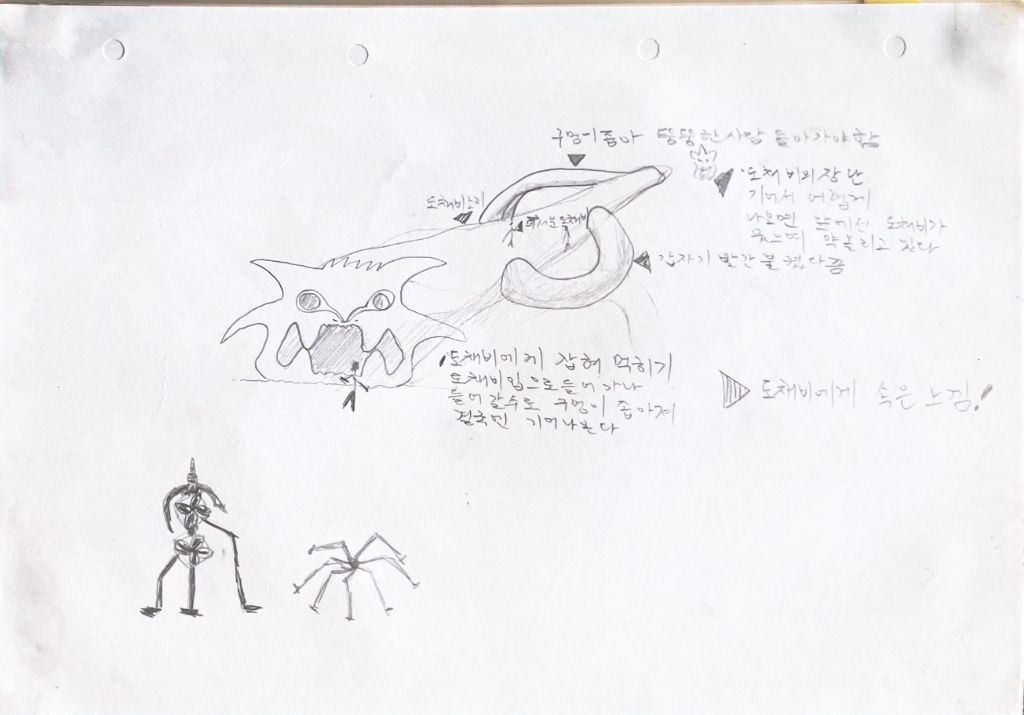 구멍이 좁아 뚱뚱한 사람 돌아가야 함
도채비의 장난
기어서 어렵게
나오면 눈에선 도채비가
웃느며 약올리고 있다
도채비소리
무서운 도채비
갑자기 빨간불 켰다 끔
도채비에게 잡혀 먹히기
도채비입으로 들어가나
들어갈수도 구멍이 좁아져
결국엔 기어나온다
도채비에게 속은 느낌!